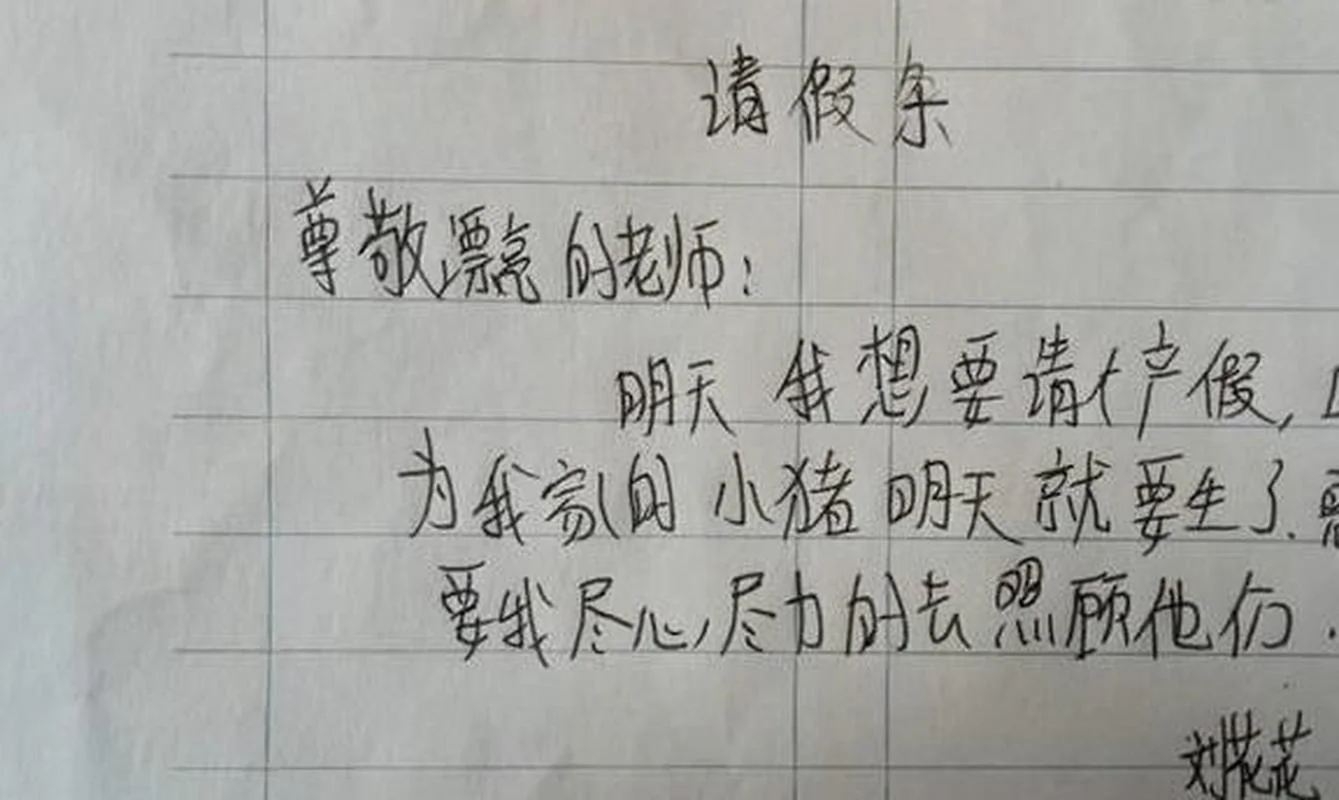 请假条
尊敬漂亮的老师:
明天我想要请个产假,
为我家的小猪明天就要生了.
要我尽心尽力的去照顾他们.
刘花花